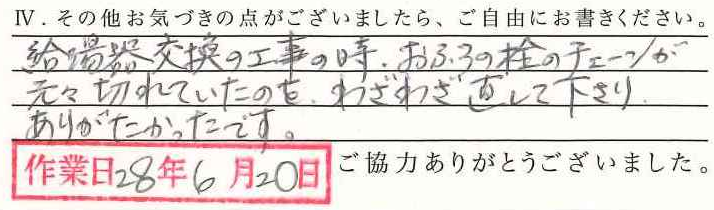 Ⅳ．その他お気づきの点がございましたら、ご自由にお書きください。
給湯器交換の工事の時、おふろの栓のチェーンが
元々切れていたのを、わざわざ直して下さり、
ありがたかったです。
作業日28年6月20日 ご協力ありがとうございました。